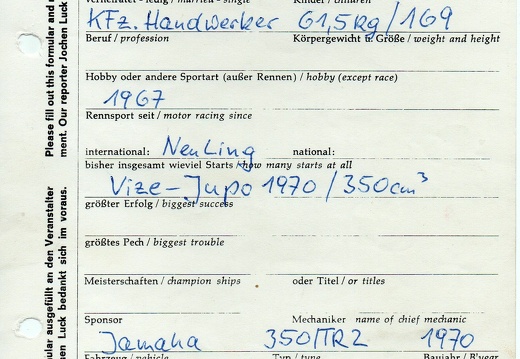 Verheiratet - ledig / married - single Kinder / children
KFz. Handwerker 61,5 kg / 169
Beruf / profession Körpergewicht u. Größe / weight and height
Hobby oder andere Sportart (außer Rennen) / hobby (except race)
1967
Rennsport seit / motor racing since
international: NeuLing national:
bisher insgesamt wieviel Starts / how many starts at all
Vize-Jupo 1970 / 350 cm³
größter Erfolg / biggest success
größtes Pech / biggest trouble
Meisterschaften / champion ships oder Titel / or titles
Sponsor Mechaniker name of chief mechanic
Jamaha 350/TR2 1970
Fahrzeug / vehicle Typ / type Baujahr / B'year
Please fill out this formular and
ment. Our reporter Jochen Luck
ular ausgefüllt an den Veranstalter
Luck bedankt sich im voraus.